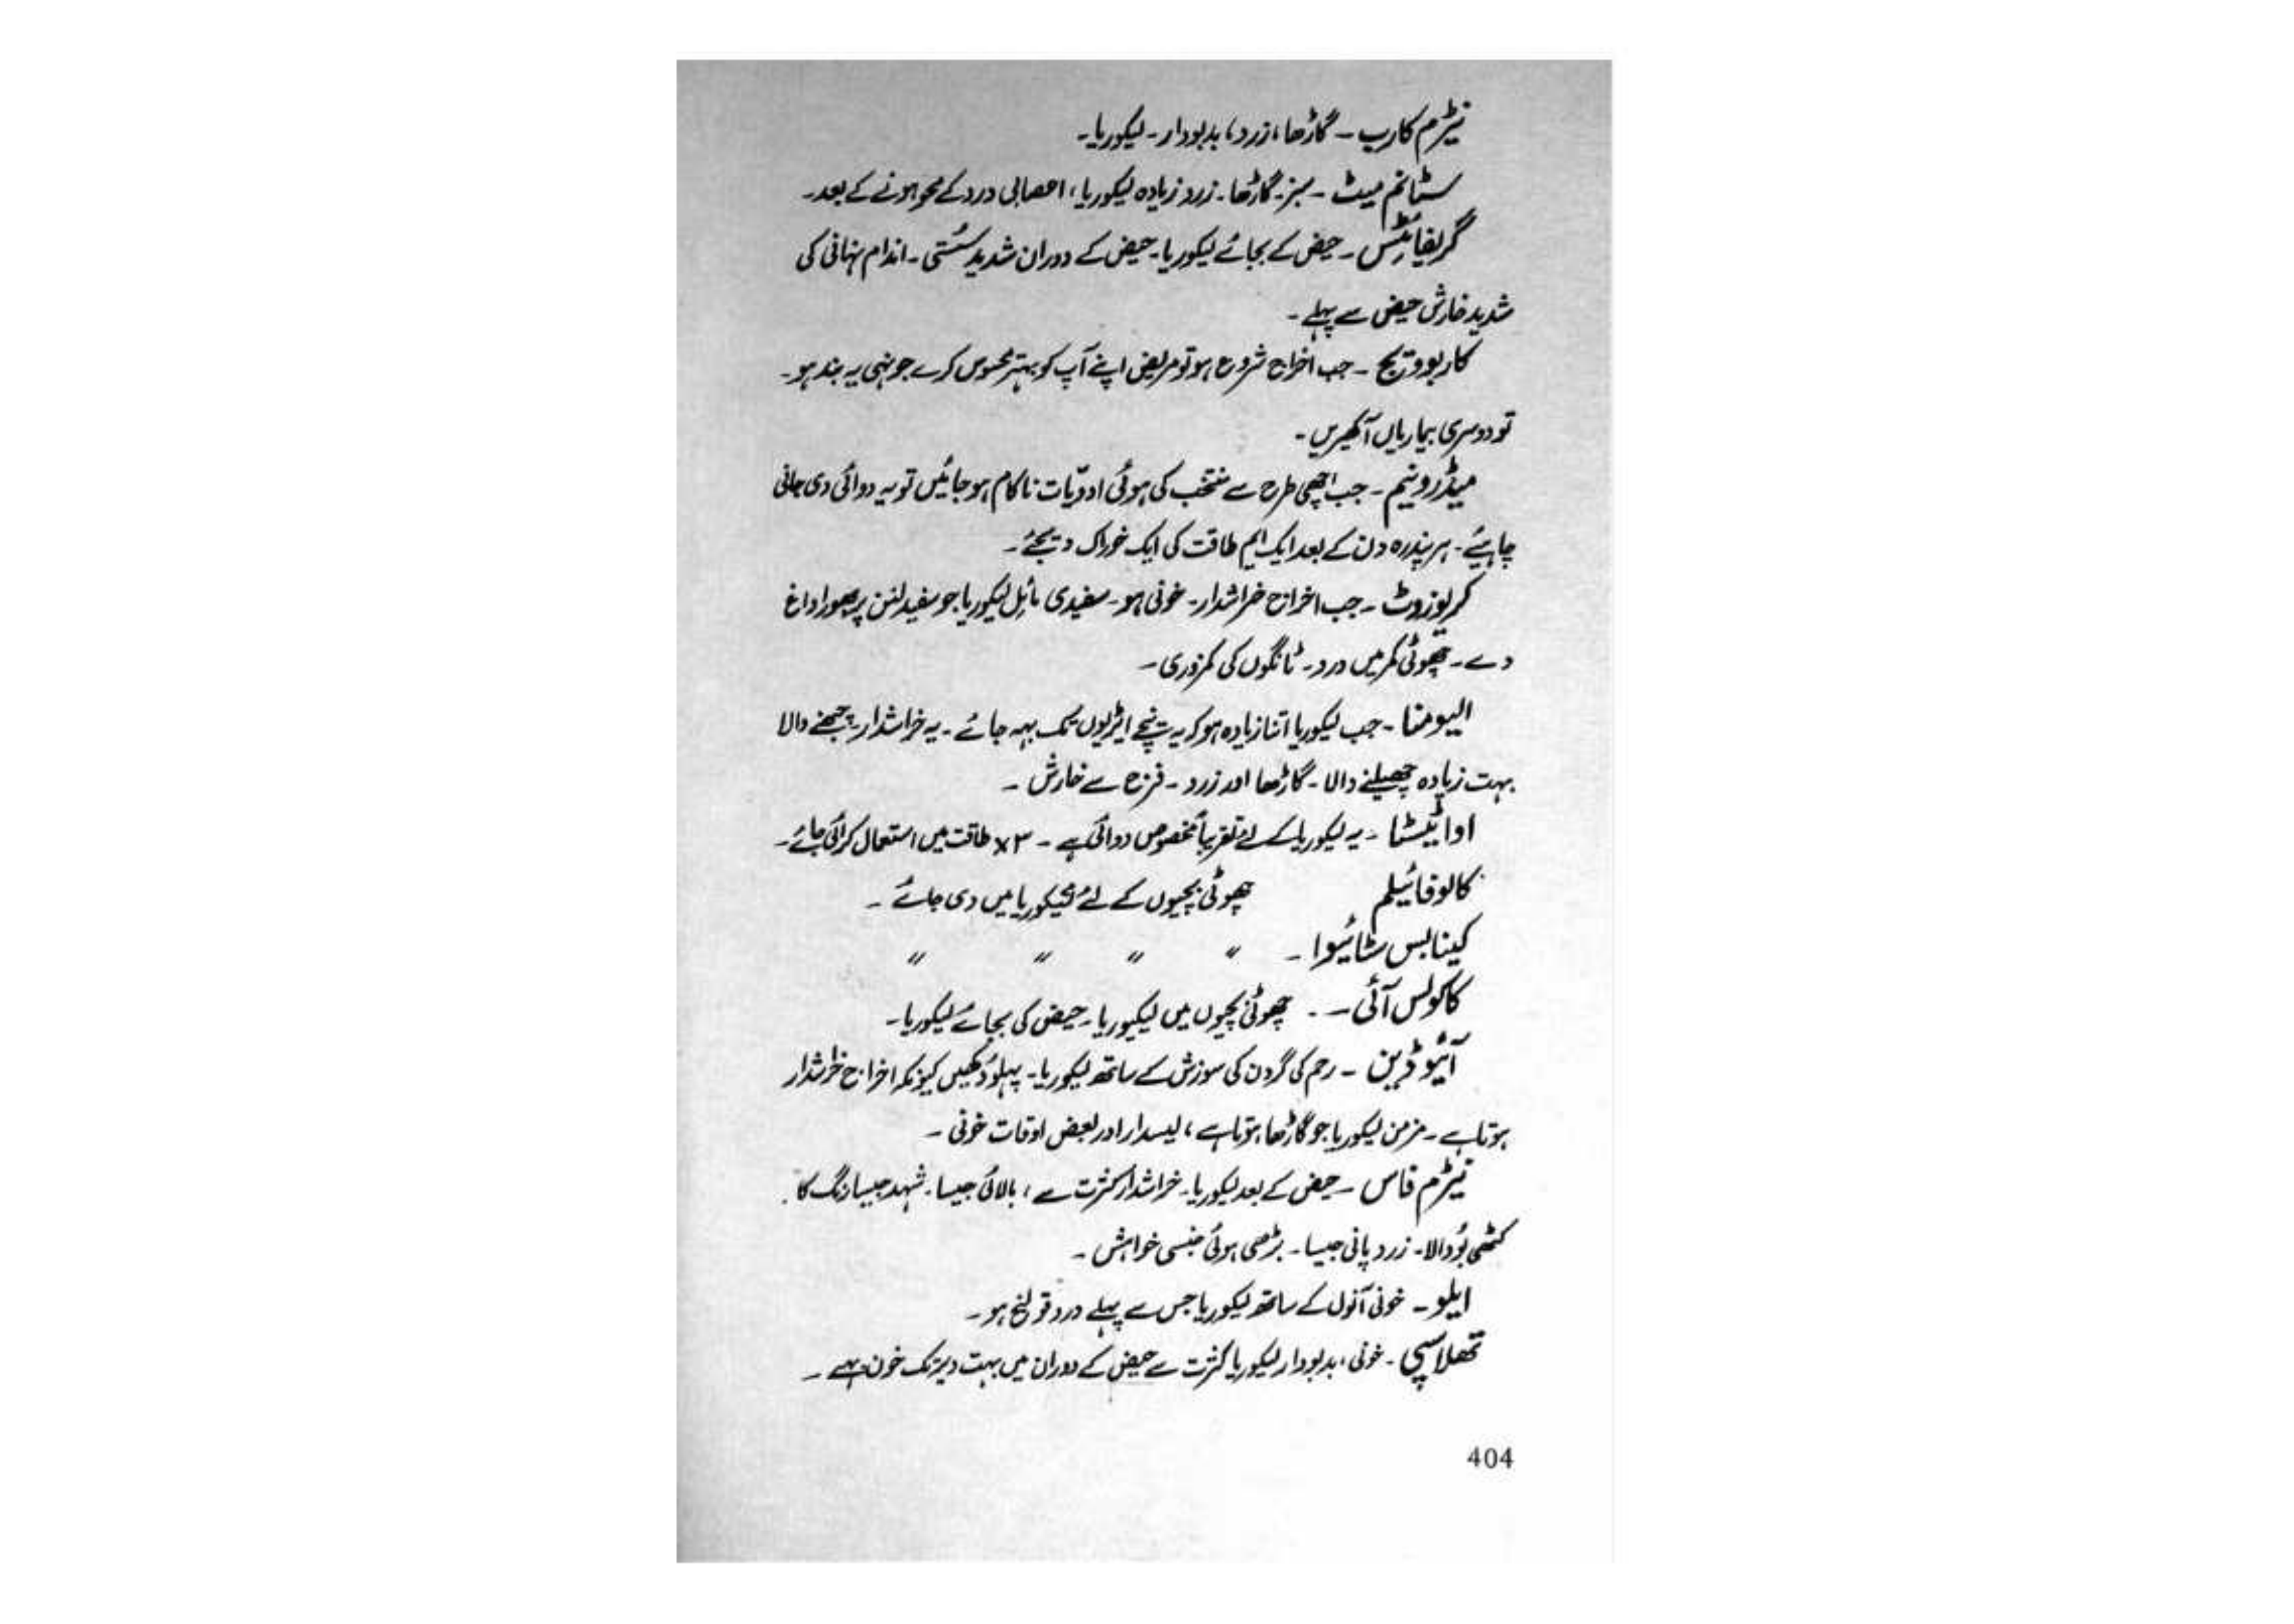 نیٹرم کارب - گاڑھا، زرد، بدبودار - لیکوریا۔
سٹانم میٹ - سبز - گاڑھا - زرد زیادہ لیکوریا، اعصابی درد کے محو ہونے کے بعد۔
گریفائٹس - حیض کے بجائے لیکوریا - حیض کے دوران شدید سُستی - اندام نہانی کی
شدید خارش حیض سے پہلے۔
کاربوویج - جب اخراج شروع ہو تو مریض اپنے آپ کو بہتر محسوس کرے جونہی یہ بند ہو۔
تو دوسری بیماریاں آگھیریں۔
میڈرونیم - جب اچھی طرح سے منتخب کی ہوئی ادویات ناکام ہو جائیں تو یہ دوائی دی جانی
چاہیئے - ہر پندرہ دن کے بعد ایک ایم طاقت کی ایک خوراک دیجئے۔
کریوزوٹ - جب اخراج خراشدار - خونی ہو - سفیدی مائل لیکوریا جو سفید لنن پر بھورا داغ
دے - چھوٹی کمر میں درد - ٹانگوں کی کمزوری۔
الیومنا - جب لیکوریا اتنا زیادہ ہو کہ یہ نیچے ایڑیوں تک بہہ جائے - یہ خراشدار - چبھنے والا
بہت زیادہ چھیلنے والا - گاڑھا اور زرد - فرج سے خارش۔
اوا ٹیسٹا - یہ لیکوریا کے لئے تقریباً مخصوص دوائی ہے - ۳x طاقت میں استعمال کرائی جائے۔
کالوفائیلم چھوٹی بچیوں کے لئے لیکوریا میں دی جائے۔
کینابس سٹائیوا - " " " "
کاکولس آئی - - چھوٹی بچیوں میں لیکیوریا - حیض کی بجائے لیکوریا۔
آئیوڈین - رحم کی گردن کی سوزش کے ساتھ لیکوریا - پہلو دُکھیں کیونکہ اخراج خراشدار
ہوتا ہے - مزمن لیکوریا جو گاڑھا ہوتا ہے، لیسدار اور بعض اوقات خونی۔
نیٹرم فاس - حیض کے بعد لیکوریا - خراشدار کثرت سے، بالائی جیسا - شہد جیسا رنگ کا۔
کھٹی بُو والا - زرد پانی جیسا - بڑھی ہوئی جنسی خواہش۔
ایلو - خونی آنوں کے ساتھ لیکوریا جس سے پہلے درد قولنج ہو۔
تھلاسپی - خونی، بدبودار لیکوریا کثرت سے حیض کے دوران میں بہت دیر تک خون بہے۔
404